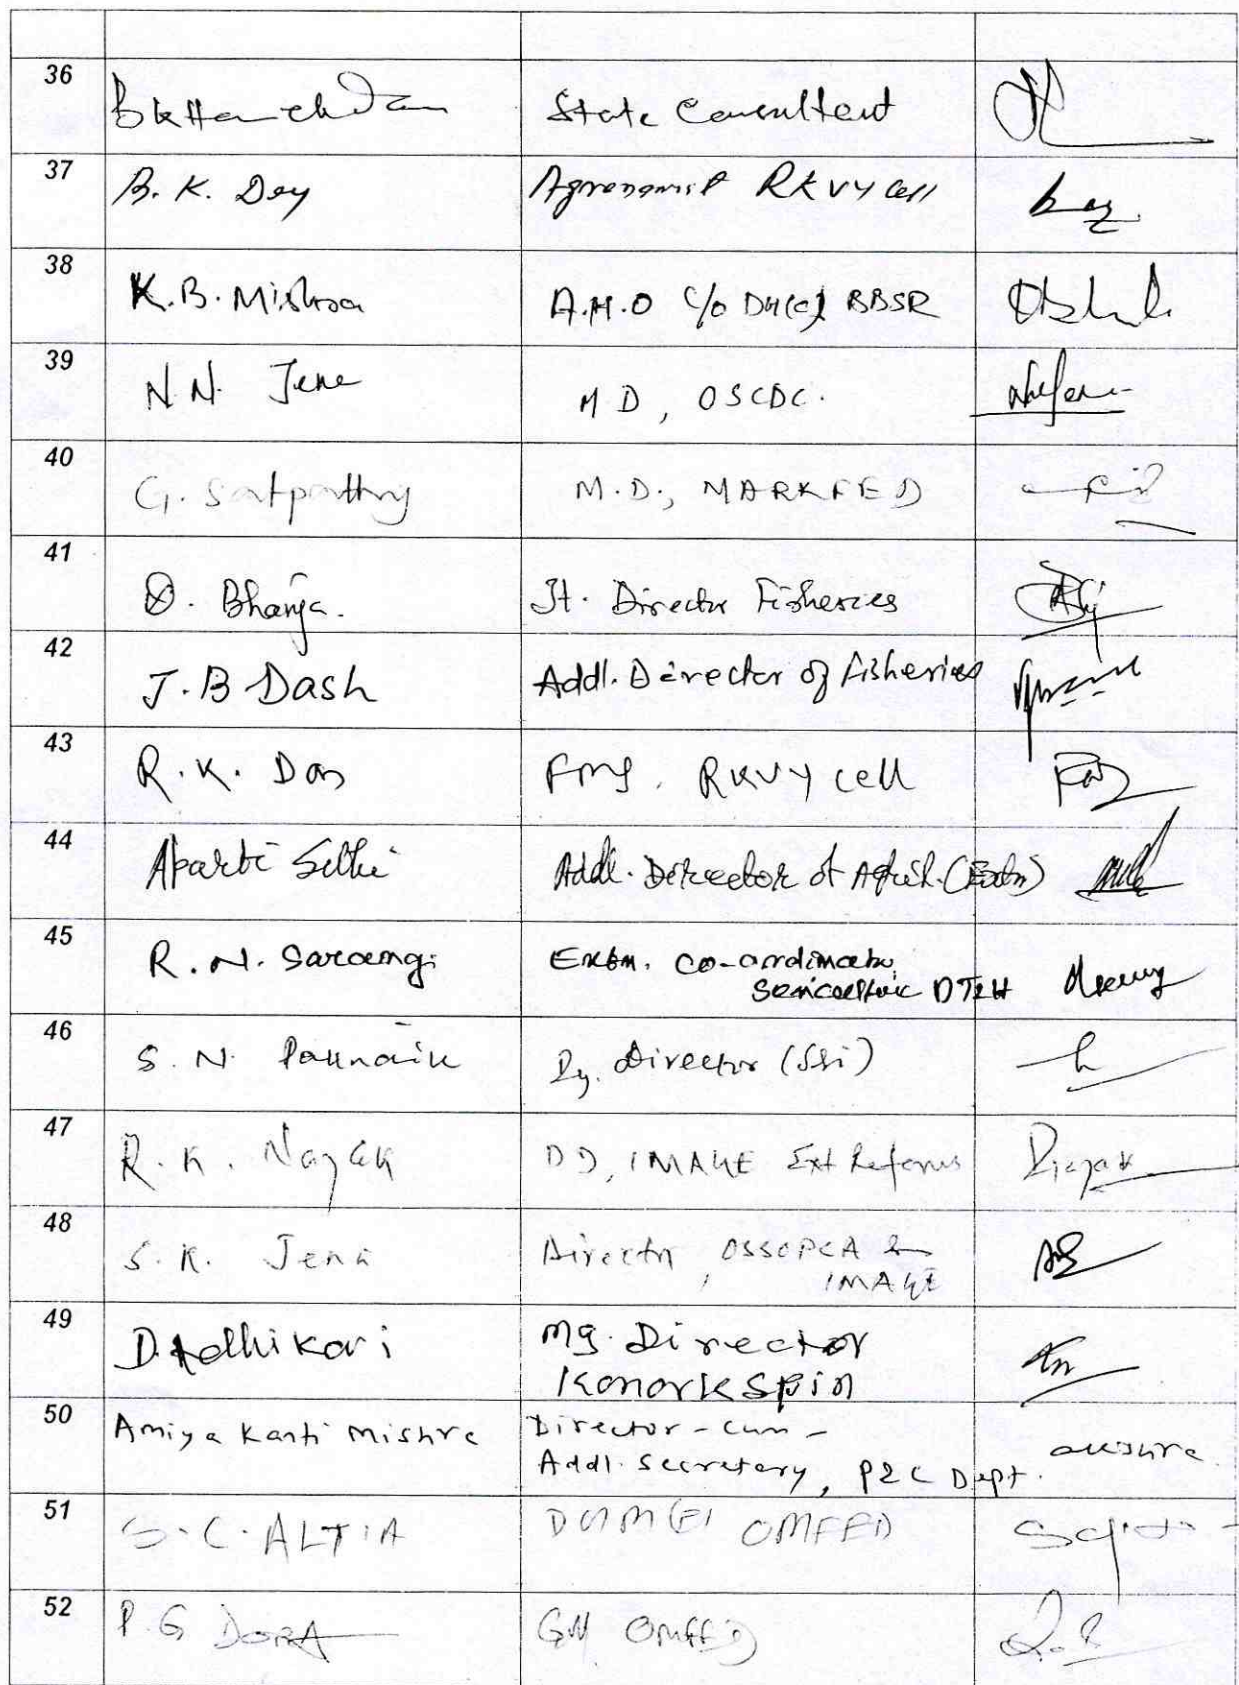 36
State Consultant
37
B. K. Dey
Agronomist RKVY Cell
38
K.B. Mishra
A.H.O C/o DH(C) BBSR
39
N.N. Jena
M D, OSCDC.
40
G. Satpathy
M.D., MARKFED
41
D. Bhanja.
Jt. Director Fisheries
42
J.B Dash
Addl. Director of Fisheries
43
R.K. Das
RKVY cell
44
Aparti Sethi
Addl. Director of Agril. (Extn)
45
R.N. Sarangi
Extn. Co-ordinator
Sericulture
46
S. N. Patnaik
Dy. Director
47
R.K. Nayak
DD, IMAGE Ext Reforms
Rnayak
48
S.K. Jena
Director, OSSOPCA &
IMAGE
49
D. Adhikari
Mg. Director
Konark Spin
50
Amiya Kanti Mishra
Director-cum-
Addl. Secretary, P&C Dept.
51
S.C. ALTIA
OMFED
52
P.G DORA
GM OMFED